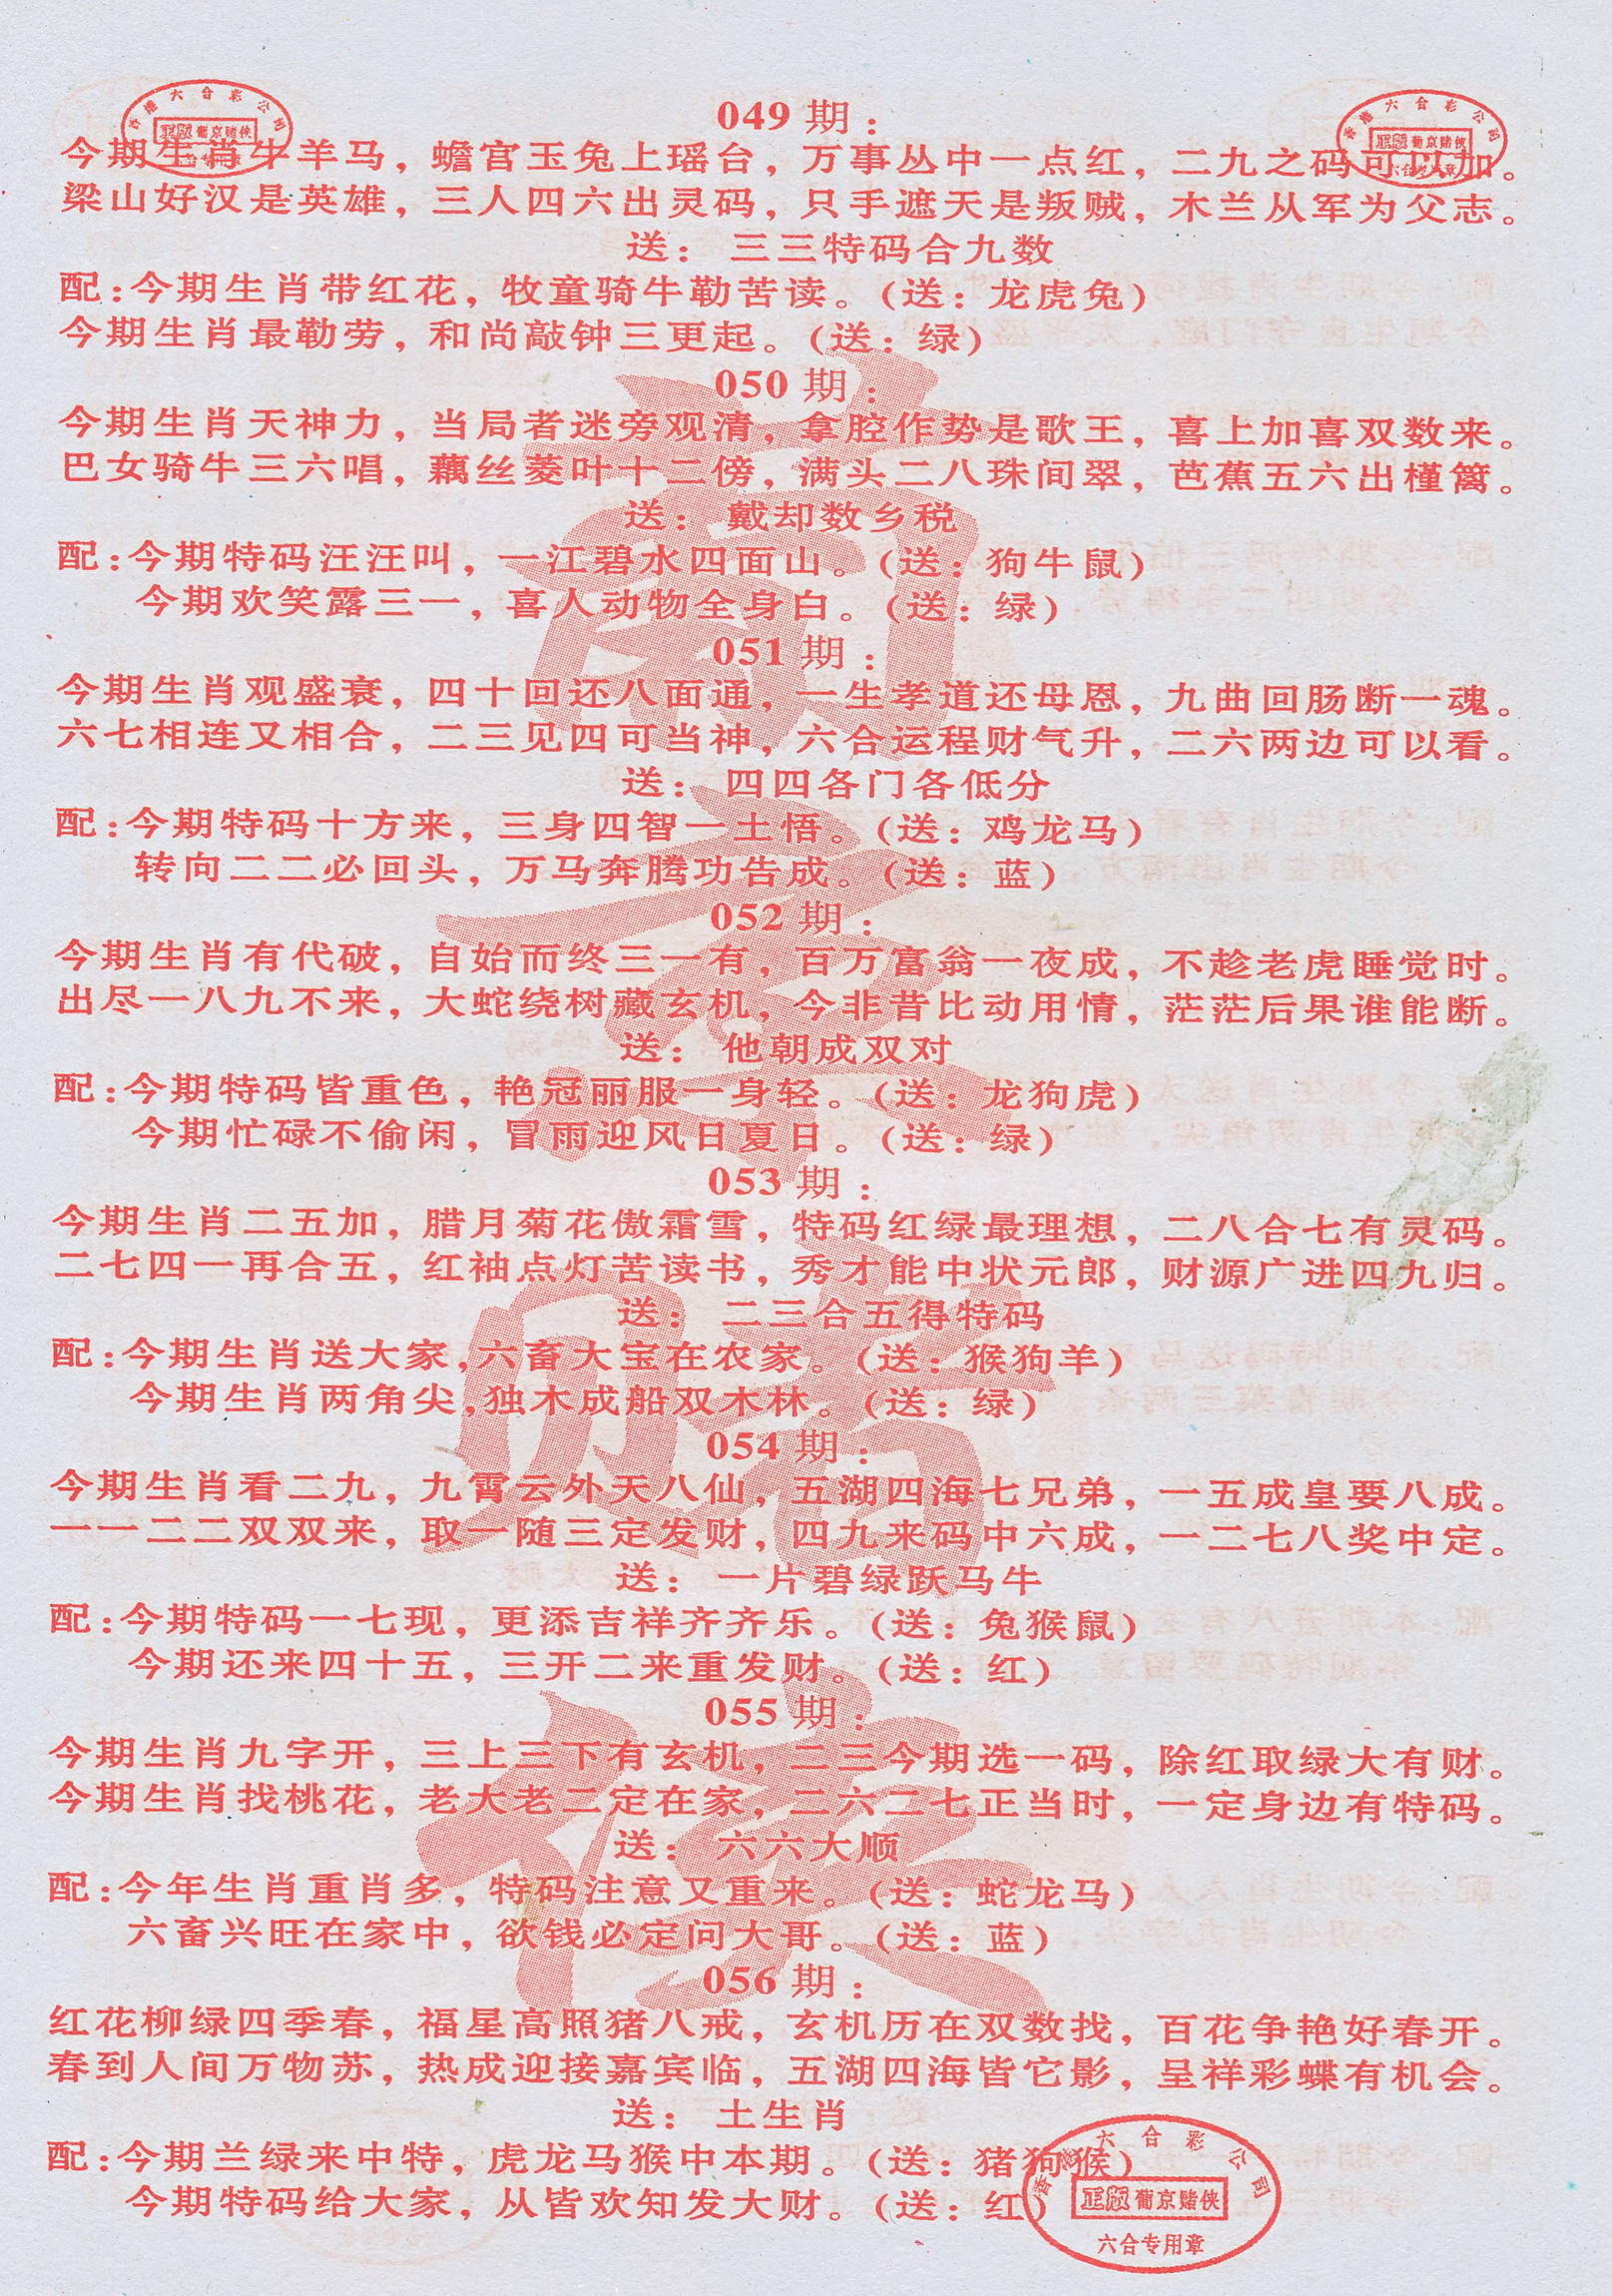 049期：
今期生肖牛羊马，蟾宫玉兔上瑶台，万事丛中一点红，二九之码可以加。
梁山好汉是英雄，三人四六出灵码，只手遮天是叛贼，木兰从军为父志。
送：三三特码合九数
配：今期生肖带红花，牧童骑牛勒苦读。（送：龙虎兔）
今期生肖最勒劳，和尚敲钟三更起。（送：绿）
050期：
今期生肖天神力，当局者迷旁观清，拿腔作势是歌王，喜上加喜双数来。
巴女骑牛三六唱，藕丝菱叶十二傍，满头二八珠间翠，芭蕉五六出槿篱。
送：戴却数乡税
配：今期特码汪汪叫，一江碧水四面山。（送：狗牛鼠）
今期欢笑露三一，喜人动物全身白。（送：绿）
051期：
今期生肖观盛衰，四十回还八面通，一生孝道还母恩，九曲回肠断一魂。
六七相连又相合，二三见四可当神，六合运程财气升，二六两边可以看。
送：四四各门各低分
配：今期特码十方来，三身四智一土悟。（送：鸡龙马）
转向二二必回头，万马奔腾功告成。（送：蓝）
052期：
今期生肖有代破，自始而终三一有，百万富翁一夜成，不趁老虎睡觉时。
出尽一八九不来，大蛇绕树藏玄机，今非昔比动用情，茫茫后果谁能断。
送：他朝成双对
配：今期特码皆重色，艳冠丽服一身轻。（送：龙狗虎）
今期忙碌不偷闲，冒雨迎风日夏日。（送：绿）
053期：
今期生肖二五加，腊月菊花傲霜雪，特码红绿最理想，二八合七有灵码。
二七四一再合五，红袖点灯苦读书，秀才能中状元郎，财源广进四九归。
送：二三合五得特码
配：今期生肖送大家，六畜大宝在农家。（送：猴狗羊）
今期生肖两角尖，独木成船双木林。（送：绿）
054期：
今期生肖看二九，九霄云外天八仙，五湖四海七兄弟，一五成皇要八成。
一一二二双双来，取一随三定发财，四九来码中六成，一二七八奖中定。
送：一片碧绿跃马牛
配：今期特码一七现，更添吉祥齐齐乐。（送：兔猴鼠）
今期还来四十五，三开二来重发财。（送：红）
055期：
今期生肖九字开，三上三下有玄机，二三今期选一码，除红取绿大有财。
今期生肖找桃花，老大老二定在家，二六二七正当时，一定身边有特码。
送：六六大顺
配：今年生肖重肖多，特码注意又重来。（送：蛇龙马）
六畜兴旺在家中，欲钱必定问大哥。（送：蓝）
056期：
红花柳绿四季春，福星高照猪八戒，玄机历在双数找，百花争艳好春开。
春到人间万物苏，热成迎接嘉宾临，五湖四海皆它影，呈祥彩蝶有机会。
送：土生肖
配：今期兰绿来中特，虎龙马猴中本期。（送：猪狗猴）
今期特码给大家，从皆欢知发大财。（送：红）
香港六合彩公司
正版葡京赌侠
六合专用章